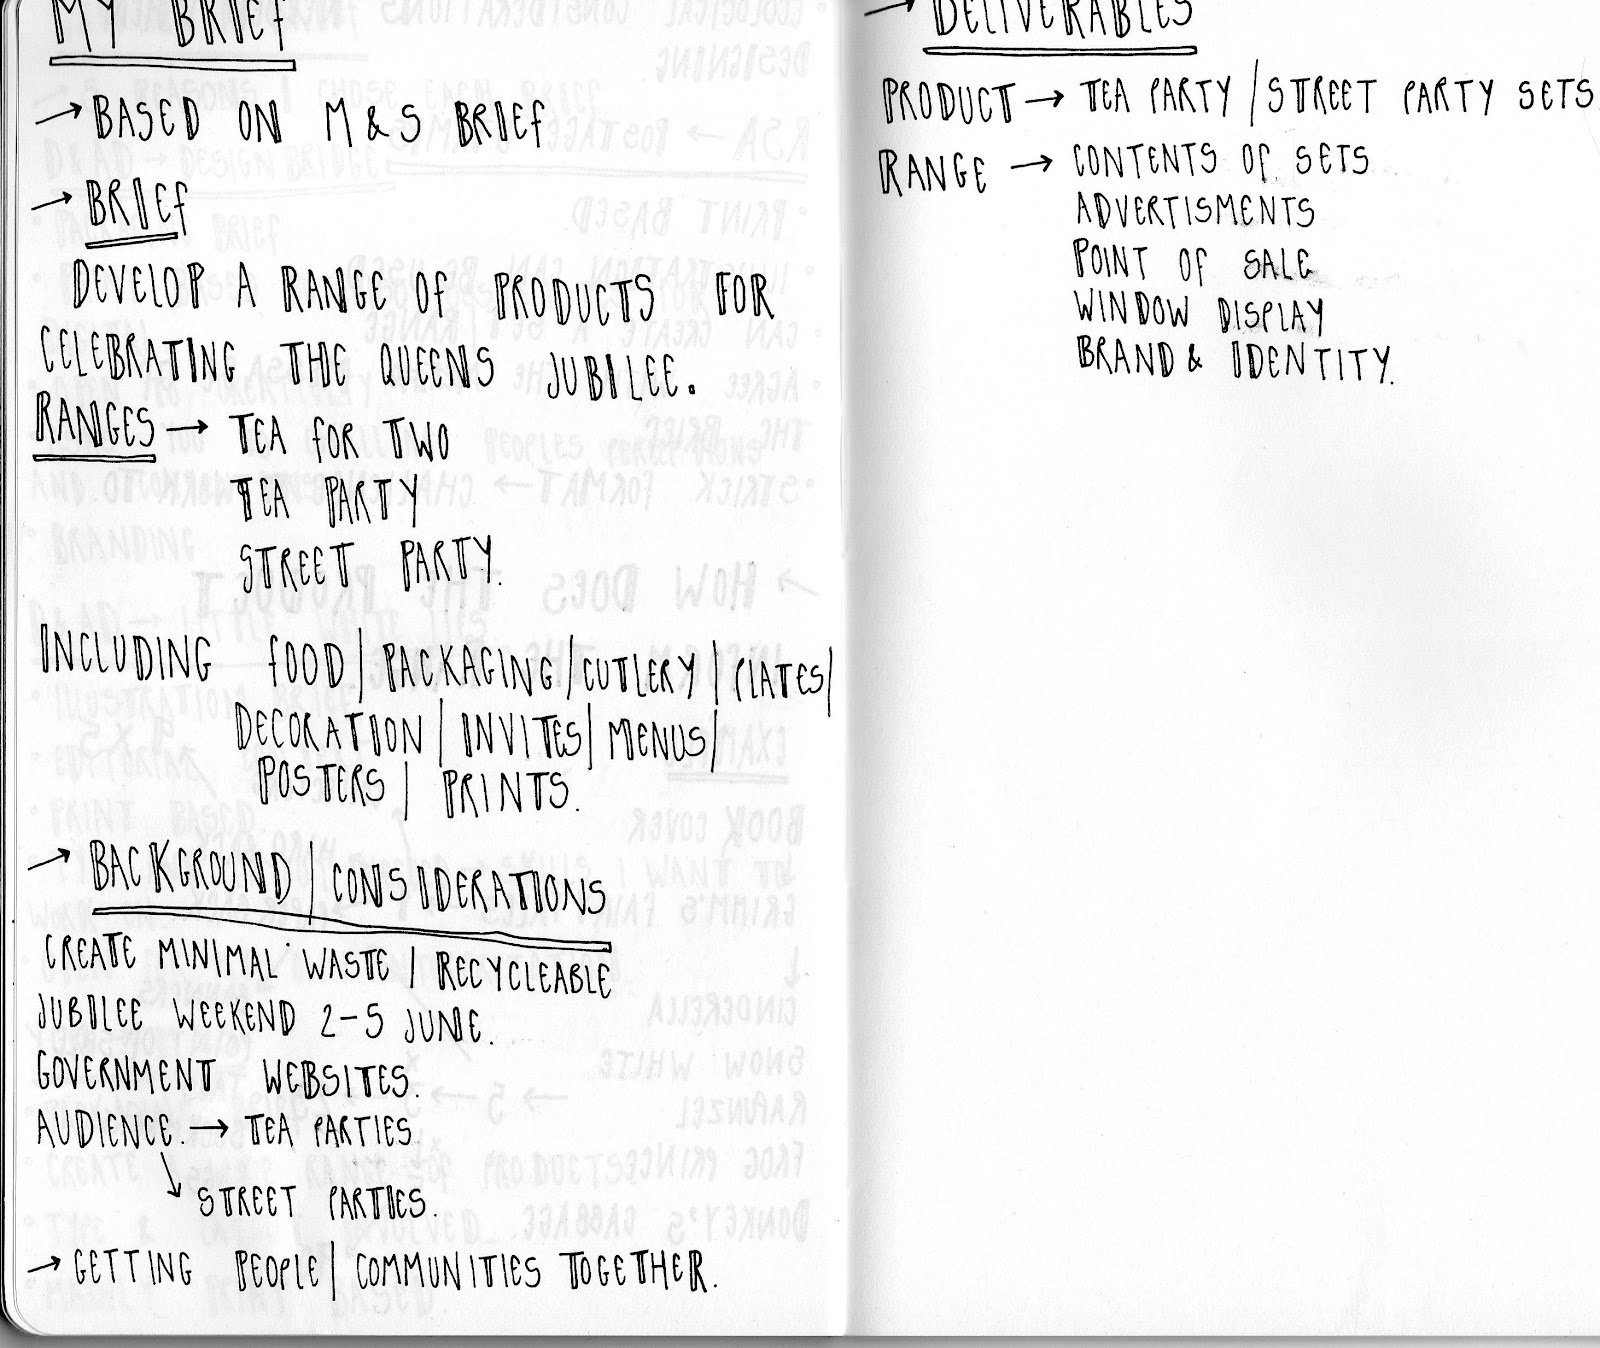 MY BRIEF
→ BASED ON M & S BRIEF
→ BRIEF
DEVELOP A RANGE OF PRODUCTS FOR
CELEBRATING THE QUEENS JUBILEE.
RANGES → TEA FOR TWO
TEA PARTY
STREET PARTY.
INCLUDING FOOD / PACKAGING / CUTLERY / PLATES /
DECORATION / INVITES / MENUS /
POSTERS / PRINTS.
→ BACKGROUND / CONSIDERATIONS
CREATE MINIMAL WASTE / RECYCLEABLE
JUBILEE WEEKEND 2-5 JUNE.
GOVERNMENT WEBSITES.
AUDIENCE. → TEA PARTIES.
↘ STREET PARTIES.
→ GETTING PEOPLE / COMMUNITIES TOGETHER.
→ DELIVERABLES
PRODUCT → TEA PARTY / STREET PARTY SETS
RANGE → CONTENTS OF SETS
ADVERTISMENTS
POINT OF SALE
WINDOW DISPLAY
BRAND & IDENTITY.